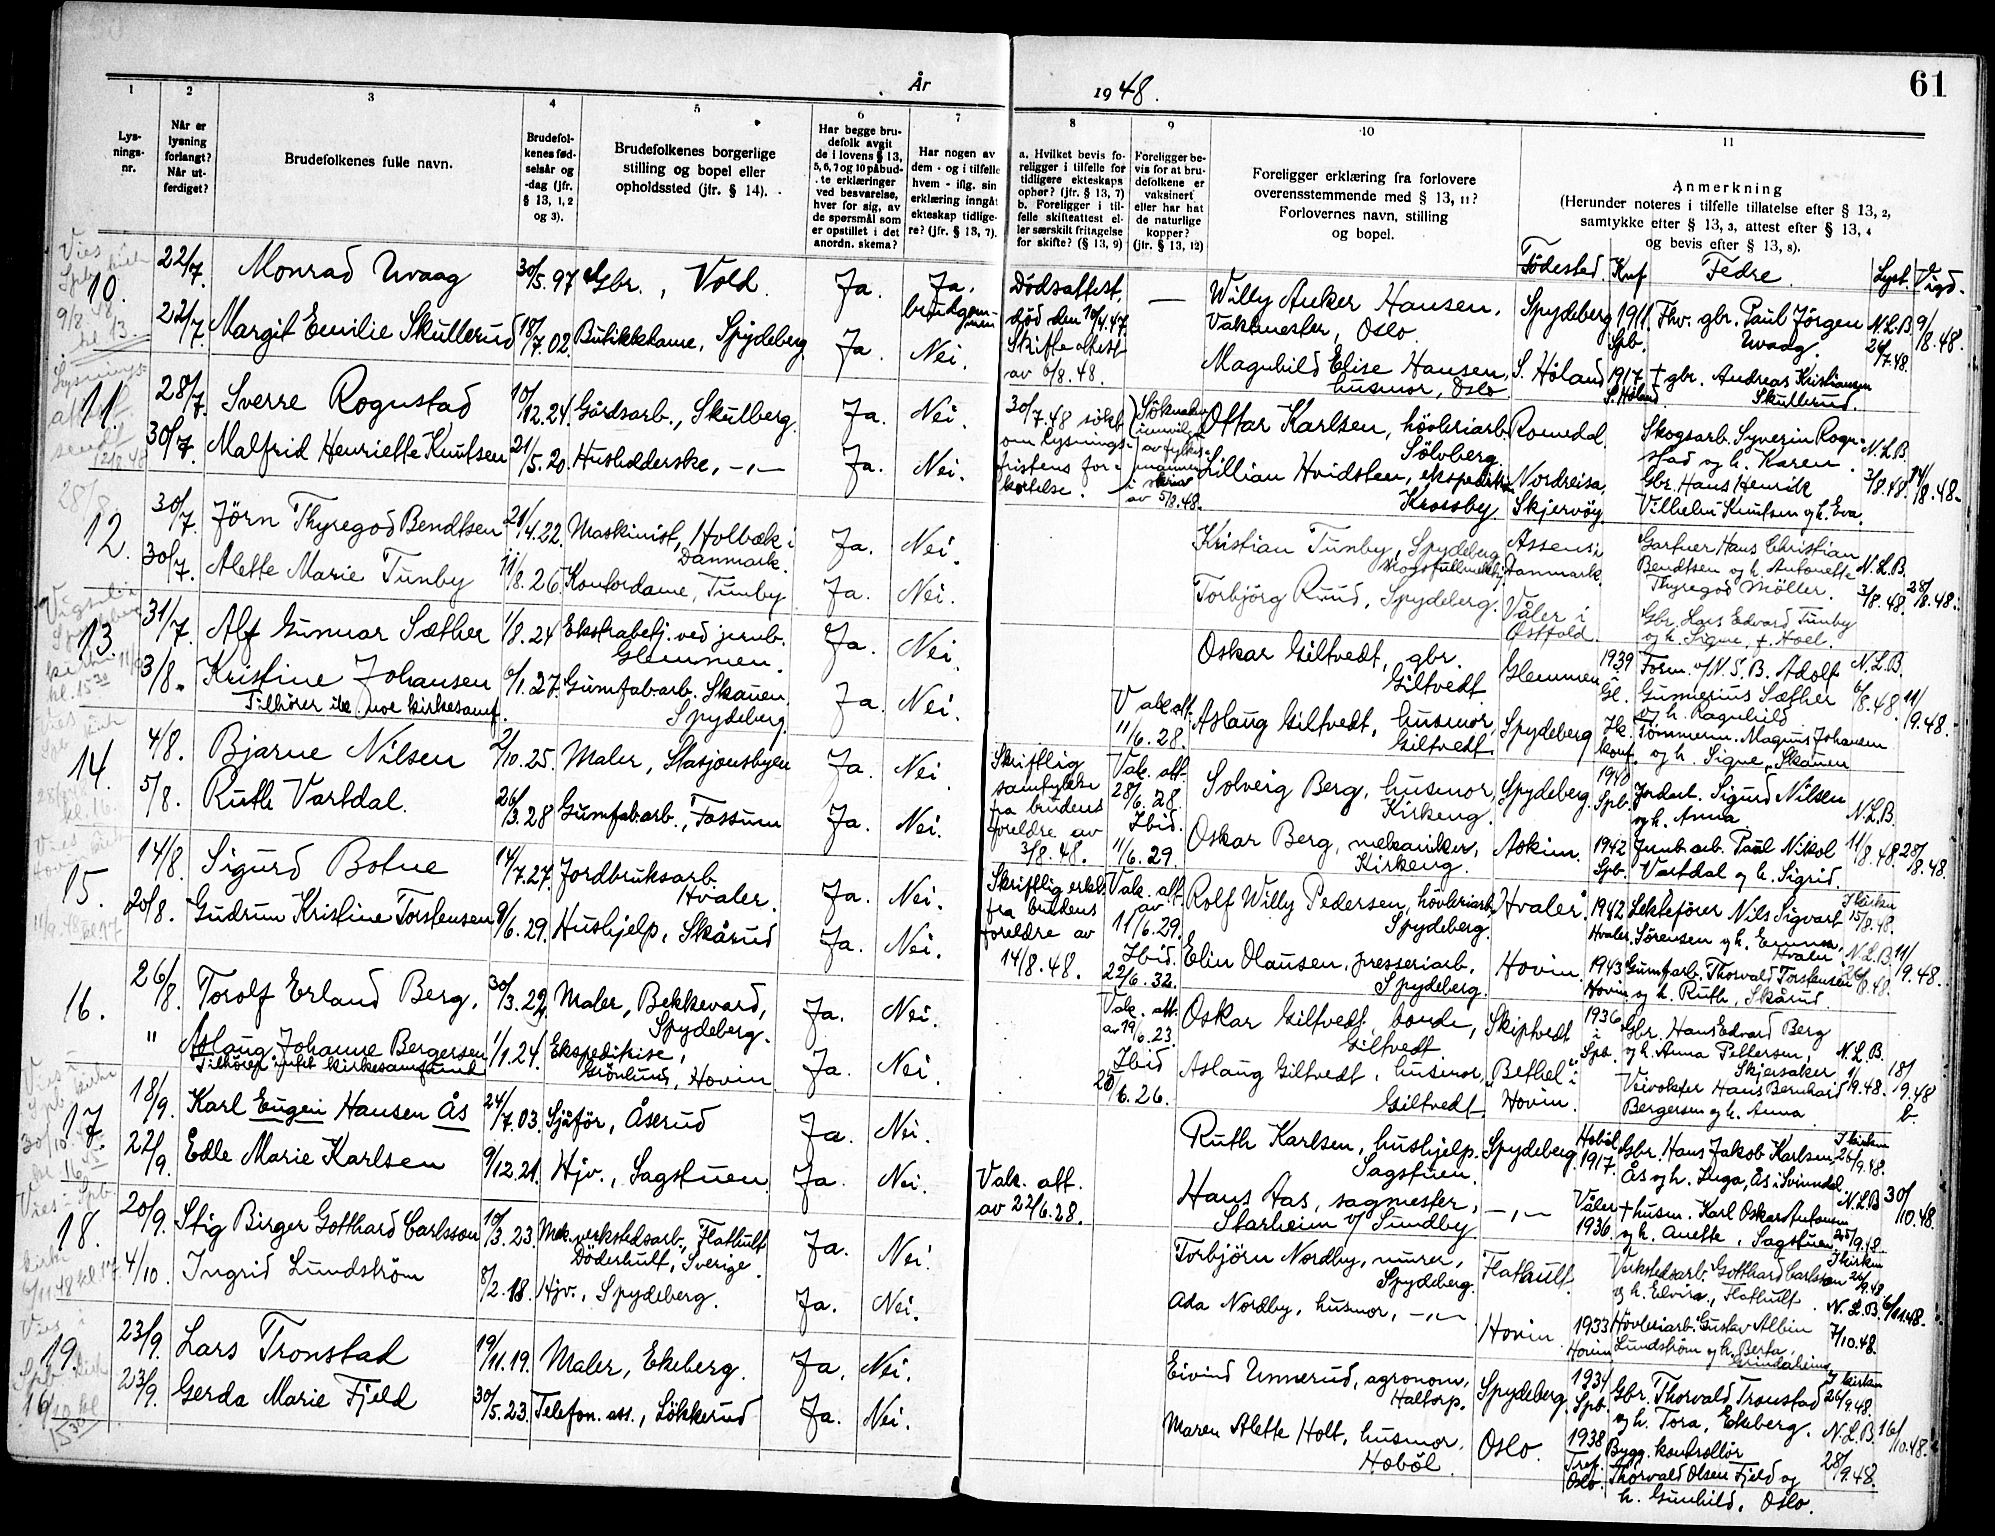 År
1948.
61
1
2
3
4
5
6
7
8
9
10
11
Lys-
nings-
nr.
Når er
lysning
forlangt?
Når ut-
ferdiget?
Brudefolkenes fulle navn.
Brudefol-
kenes fød-
selsår og
-dag (jfr.
§ 13, 1, 2
og 3).
Brudefolkenes borgerlige
stilling og bopel eller
opholdssted (jfr. § 14).
Har begge bru-
defolk avgit
de i lovens § 13,
5, 6, 7 og 10 påbud-
te erklæringer
ved besvarelse,
hver for sig, av
de spørsmål som
er opstillet i det
anordn. skema?
Har nogen av
dem - og i tilfelle
hvem - iflg. sin
erklæring inngåt
ekteskap tidlige-
re? (jfr. § 13, 7).
a. Hvilket bevis fo-
religger i tilfelle for
tidligere ekteskaps
ophør? (jfr. § 13, 7)
b. Foreligger i til-
felle skifteattest el-
ler særskilt fritagelse
for skifte? (§ 13, 9)
Foreligger be-
vis for at bru-
defolkene er
vaksinert
eller har hat
de naturlige
kopper?
(jfr. § 13, 12)
Foreligger erklæring fra forlovere
overensstemmende med § 13, 11?
Forlovernes navn, stilling
og bopel.
Anmerkning
(Herunder noteres i tilfelle tillatelse efter § 13, 2,
samtykke efter § 13, 3, attest efter § 13, 4
og bevis efter § 13, 8).
Födested. Knf. Fedre. Lyst. Vigd.
10. 22/7. Monrad Uvaag 30/5. 97 Gbr., Vold. Ja. Ja, brudgommen
Dødsattest, død den 10/4.47. Skifteattest av 6/8.48. — Willy Anker Hansen, Vaktmester, Oslo. Spydeberg 1911 Spb. Fhv. gbr. Paul Jörgen Uvaag. N.L.B. 24/7.48. 9/8.48.
22/7. Margit Emilie Skullerud 18/7.02. Butikkdame, Spydeberg Ja. Nei.
Magnhild Elise Hansen, husmor, Oslo S. Höland 1917 S. Höland † gbr. Andreas Kristiansen Skullerud.
11. 28/7. Sverre Rognstad 10/12.24. Gårdsarb., Skulberg. Ja. Nei.
30/7.48 søkt om lysnings-fristens for-kortelse. Ottar Karlsen, høvleriarb. Sölvberg. Romedal Skogsarb. Syverin Rogn-stad og h. Karen. N.L.B. 3/8.48. 14/8.48.
30/7. Malfrid Henriette Knutsen 21/5.20. Husholderske, -"- Ja. Nei.
av 5/8.48. Lillian Hvidsteen, Krossby. Nordreisa, Skjervöy. Gbr. Hans Henrik Vilhelm Knutsen og h. Eva.
12. 30/7. Jörn Thyregod Bendtsen 21/4.22. Maskinist, Holbæk i Danmark. Ja. Nei.
Kristian Tunby, Spydeberg Assens i Danmark. Gartner Hans Christian Bendtsen og h. Antonette Thyregod Möller. N.L.B. 3/8.48. 28/8.48.
30/7. Alette Marie Tunby 11/8.26 Kontordame, Tunby Ja. Nei.
Torbjörg Ruud, Spydeberg. Våler i Østfold. Gbr. Lars Edvard Tunby og h. Signe, f. Hoel.
13. 31/7. Alf Gunnar Sæther 1/8.24 Ekstrabetj. ved jernb. Glemmen. Ja. Nei.
Oskar Giltvedt, gbr. Giltvedt Glemmen 1939 Gl. Form. v/N.S.B. Adolf Gunnerius Sæther og h. Ragnhild N.L.B. 6/8.48. 11/9.48.
3/8. Kristine Johansen 6/1.27. Gumfabarb. Skauen, Spydeberg. Ja. Nei.
Tilhører ikke noe kirkesamf.
Vak. att. 11/6.28. Aslaug Giltvedt, husmor, Giltvedt Spydeberg Ik. konf. Tömmerm. Magnus Johansen og h. Signe, Skauen
14. 4/8. Bjarne Nilsen 2/10.25. Maler, Stasjonsbyen Ja. Nei
Skriftlig samtykke fra brudens foreldre av 3/8.48. Vak. att. 28/6.28. Solveig Berg, husmor, Kirkeng. Spydeberg 1940 Spb. Jordarb. Sigurd Nilsen og h. Anna N.L.B. 11/8.48. 28/8.48.
5/8. Ruth Vartdal. 26/3.28 Gumfabarb., Fossum Ja. Nei.
Ibid. 11/6.29. Oskar Berg, mekaniker, Kirkeng. Askim. 1942 Spb. Jernb.arb. Paul Nikol Vartdal og h. Sigrid.
15. 14/8. Sigurd Botne 14/7.27. Jordbruksarb. Hvaler. Ja. Nei.
Skriftlig erkl. fra brudens foreldre av 14/8.48. Vak. att. av 11/6.29. Rolf Willy Pedersen, høvleriarb. Spydeberg. Hvaler. 1942 Hvaler. Lektefører Nils Sigvart Sörensen og h. Emma, Hvaler I kirken 15/8.48. N.L.B. 11/9.48.
20/8. Gudrun Kristine Torstensen 9/6.29. Hushjelp, Skårud Ja. Nei.
Ibid. 22/6.32. Elin Olausen, presseriarb. Spydeberg. Hovin 1943 Hovin Gumfarb. Thorvald Torstensen og h. Ruth, Skårud
16. 26/8. Torolf Erland Berg, 30/3.22 Maler, Bekkevard, Spydeberg. Ja. Nei.
Vak. att. av 19/6.23. Oskar Giltvedt, bonde, Giltvedt Skiptvedt 1936 i Spb. Gbr. Hans Edvard Berg og h. Anna Pettersen, Skjersaker N.L.B. 1/9.48. 18/9.48
" Aslaug Johanne Bergersen 1/1.24. Ekspeditrise, Grönlund, Hovin Ja. Nei.
Tilhører intet kirkesamfund
Ibid 20/6.26. Aslaug Giltvedt, husmor, Giltvedt „Bethel" i Hovin. Veivokter Hans Bernhard Bergersen og h. Anna
17. 18/9. Karl Eugen Hansen Ås 24/7.03. Sjåför, Åserud Ja. Nei.
Ruth Karlsen, hushjelp. Sagstuen. Spydeberg Hobøl 1917. Gbr. Hans Jakob Karlsen Ås og h. Inga, Ås i Svinndal. I kirken 26/9.48. N.L.B 30/10.48.
22/9. Edle Marie Karlsen 9/12.21. Hjv., Sagstuen Ja. Nei.
Vak. att. av 22/6.28. Hans Aas, sagmester, Starheim v/ Sundby -"- Våler 1936. † husm. Karl Oskar Antonsen og h. Anette, Sagstuen
18. 20/9. Stig Birger Gotthard Carlsson 10/3.23. Mek. verkstedsarb., Flathult Döderhult, Sverige. Ja. Nei.
Torbjörn Nordby, murer, Spydeberg. Flathult. Verkstedsarb. Gotthard Carlsson og h. Elvira, Flathult. I kirken 26/9.48 N.L.B. 7/10.48. 6/11.48.
4/10. Ingrid Lundström 8/2.18. Hjv., Spydeberg. Ja. Nei.
Ada Nordby, husmor, -"- Hovin 1933 Hovin Høvleriarb. Gustav Albin Lundström og h. Berta, Grindaheim
19. 23/9. Lars Tronstad 19/11.19. Maler, Ekeberg. Ja. Nei.
Eivind Unnerud, agronom, Haltorp. Spydeberg 1934 Spb. Gbr. Thorvald Tronstad og h. Tora, Ekeberg. I kirken 26/9.48. N.L.B. 28/9.48. 16/10.48.
23/9. Gerda Marie Fjeld 30/5.23. Telefon. ass., Lökkerud Ja. Nei.
Maren Alette Holt, husmor, Hoböl. Oslo. 1938 Tref. Oslo. Bygg. kontrollör Thorvald Olsen Fjeld og h. Gunhild. Oslo.